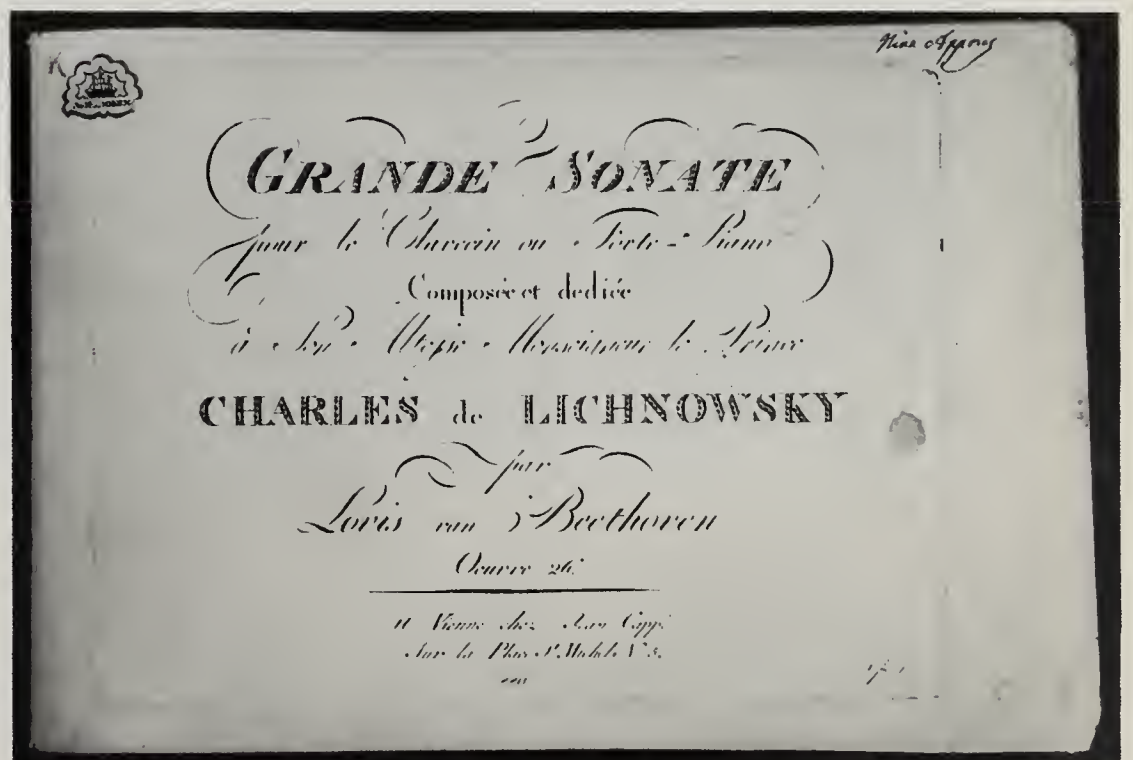 Nina Appony
GRANDE SONATE
pour le Clavecin ou Forte-Piano
Composée et dediée
à Son Altesse Monseigneur le Prince
CHARLES de LICHNOWSKY
par
Louis van Beethoven
Oeuvre 26.
à Vienne chez Jean Cappi
Sur la Place St. Michel N° 5.